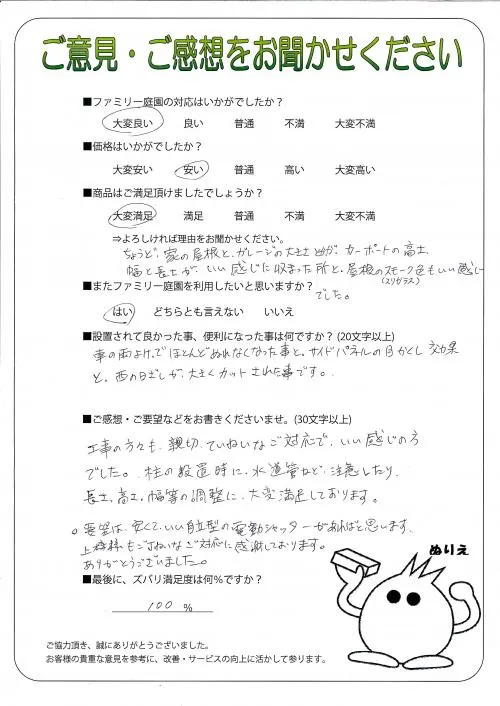 ご意見・ご感想をお聞かせください
■ファミリー庭園の対応はいかがでしたか？
大変良い 良い 普通 不満 大変不満
■価格はいかがでしたか？
大変安い 安い 普通 高い 大変高い
■商品はご満足頂けましたでしょうか？
大変満足 満足 普通 不満 大変不満
⇒よろしければ理由をお聞かせください。
ちょうど、家の屋根と、ガレージの大きさと、カーポートの高さ、
幅と長さが、いい感じに収まった所と、屋根のスモーク色もいい感じ
(スリガラス)
でした。
■またファミリー庭園を利用したいと思いますか？
はい どちらとも言えない いいえ
■設置されて良かった事、便利になった事は何ですか？(20文字以上)
車の雨よけで、ほとんどぬれなくなった事と、サイドパネルの目かくし効果
と、西の日ざしが、大きくカットされた事です。
■ご感想・ご要望などをお書きくださいませ。(30文字以上)
工事の方々も、親切、ていねいなご対応で、いい感じの方
でした。柱の設置時に、水道管など、注意したり、
長さ、高さ、幅等の調整に、大変満足しております。
。要望は、安くて、いい自立型の電動シャッターがあればと思います。
もごていねいなご対応に感謝しております。
ありがとうございました。
ぬりえ
■最後に、ズバリ満足度は何％ですか？
100 %
ご協力頂き、誠にありがとうございました。
お客様の貴重な意見を参考に、改善・サービスの向上に活かして参ります。